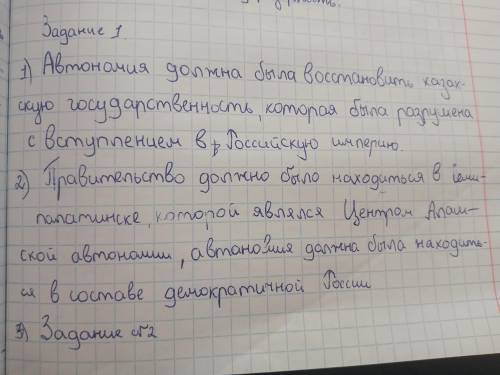 Задание 1.
1) Автономия должна была восстановить казах-
скую государственность, которая была разрушена
с вступлением в Российскую империю.
2) Правительство должно было находиться в Семи-
палатинске, которой являлся Центром Алаш-
ской автономии, автаномия должна была находить-
ся в составе демократичной России
3) Задание №2